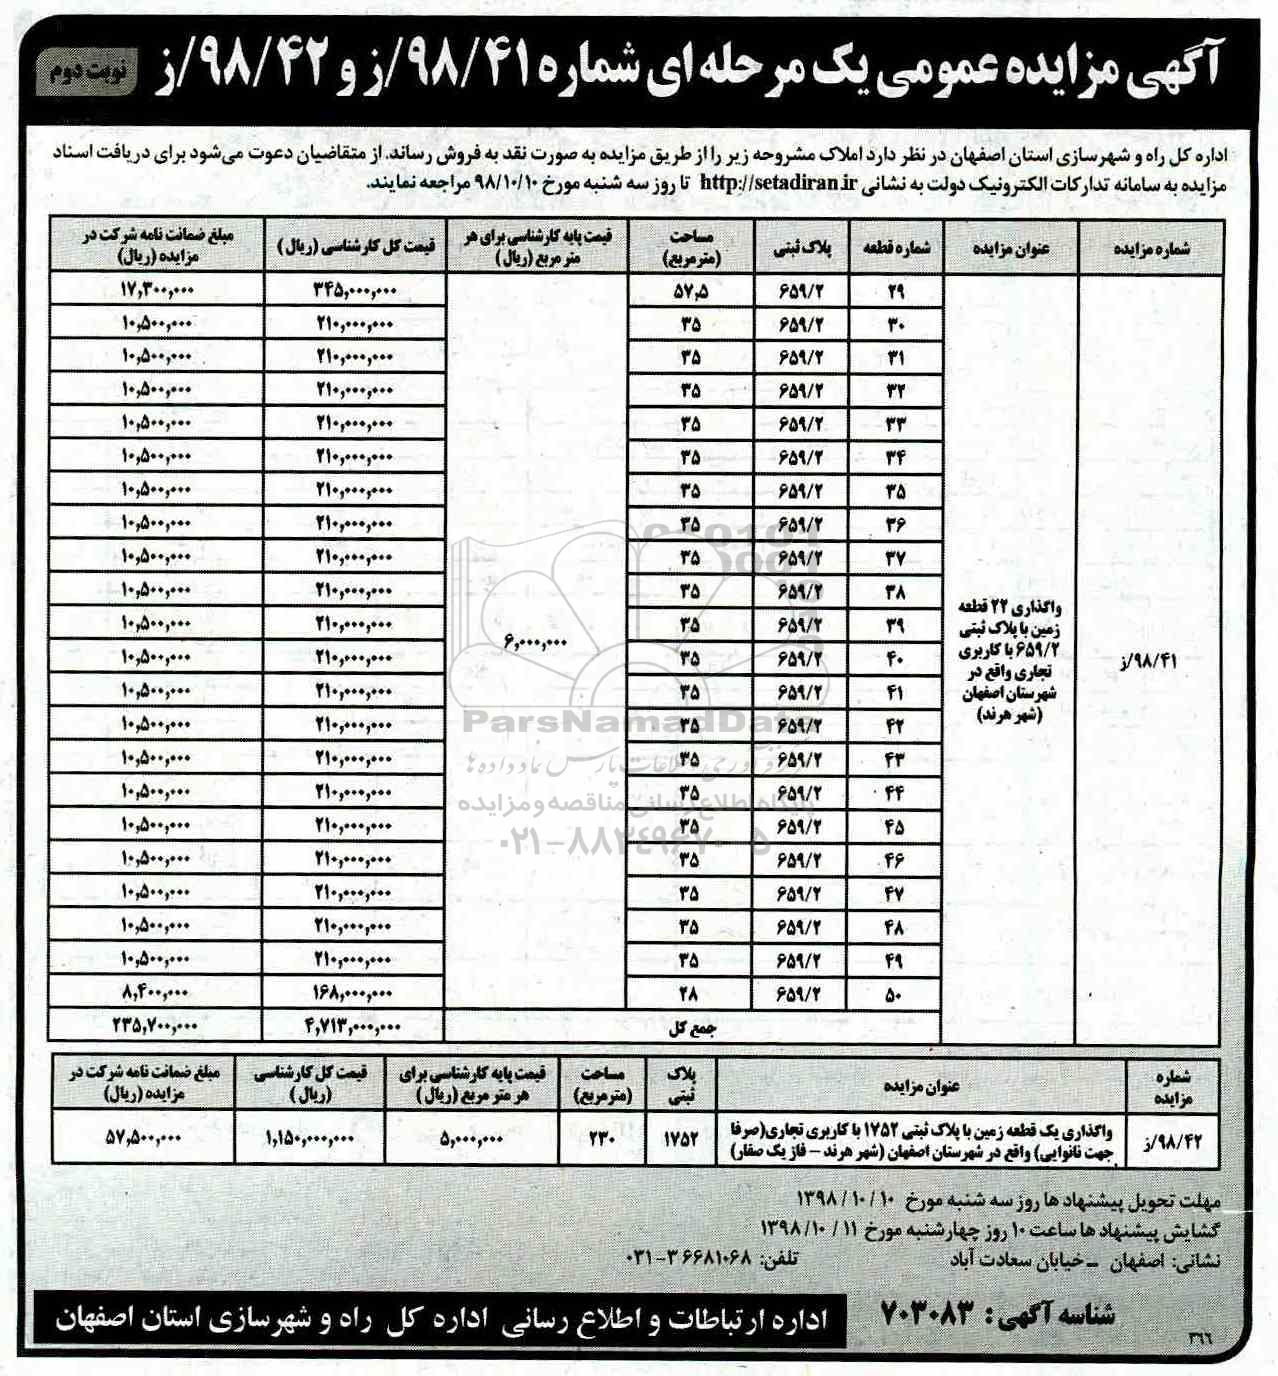 آگهی مزایده عمومی یک مرحله ای شماره ۹۸/۴۱/ز و ۹۸/۴۲/ز
نوبت دوم
اداره کل راه و شهرسازی استان اصفهان در نظر دارد املاک مشروحه زیر را از طریق مزایده به صورت نقد به فروش رساند. از متقاضیان دعوت می‌شود برای دریافت اسناد
مزایده به سامانه تدارکات الکترونیک دولت به نشانی http://setadiran.ir تا روز سه شنبه مورخ ۹۸/۱۰/۱۰ مراجعه نمایند.
شماره مزایده عنوان مزایده شماره قطعه پلاک ثبتی مساحت (مترمربع) قیمت پایه کارشناسی برای هر متر مربع (ریال) قیمت کل کارشناسی (ریال) مبلغ ضمانت نامه شرکت در مزایده (ریال)
۹۸/۴۱/ز
واگذاری ۲۲ قطعه
زمین با پلاک ثبتی
۶۵۹/۲ با کاربری
تجاری واقع در
شهرستان اصفهان
(شهر هرند)
۶,۰۰۰,۰۰۰
۲۹ ۶۵۹/۲ ۵۷٫۵ ۳۴۵,۰۰۰,۰۰۰ ۱۷,۳۰۰,۰۰۰
۳۰ ۶۵۹/۲ ۳۵ ۲۱۰,۰۰۰,۰۰۰ ۱۰,۵۰۰,۰۰۰
۳۱ ۶۵۹/۲ ۳۵ ۲۱۰,۰۰۰,۰۰۰ ۱۰,۵۰۰,۰۰۰
۳۲ ۶۵۹/۲ ۳۵ ۲۱۰,۰۰۰,۰۰۰ ۱۰,۵۰۰,۰۰۰
۳۳ ۶۵۹/۲ ۳۵ ۲۱۰,۰۰۰,۰۰۰ ۱۰,۵۰۰,۰۰۰
۳۴ ۶۵۹/۲ ۳۵ ۲۱۰,۰۰۰,۰۰۰ ۱۰,۵۰۰,۰۰۰
۳۵ ۶۵۹/۲ ۳۵ ۲۱۰,۰۰۰,۰۰۰ ۱۰,۵۰۰,۰۰۰
۳۶ ۶۵۹/۲ ۳۵ ۲۱۰,۰۰۰,۰۰۰ ۱۰,۵۰۰,۰۰۰
۳۷ ۶۵۹/۲ ۳۵ ۲۱۰,۰۰۰,۰۰۰ ۱۰,۵۰۰,۰۰۰
۳۸ ۶۵۹/۲ ۳۵ ۲۱۰,۰۰۰,۰۰۰ ۱۰,۵۰۰,۰۰۰
۳۹ ۶۵۹/۲ ۳۵ ۲۱۰,۰۰۰,۰۰۰ ۱۰,۵۰۰,۰۰۰
۴۰ ۶۵۹/۲ ۳۵ ۲۱۰,۰۰۰,۰۰۰ ۱۰,۵۰۰,۰۰۰
۴۱ ۶۵۹/۲ ۳۵ ۲۱۰,۰۰۰,۰۰۰ ۱۰,۵۰۰,۰۰۰
۴۲ ۶۵۹/۲ ۳۵ ۲۱۰,۰۰۰,۰۰۰ ۱۰,۵۰۰,۰۰۰
۴۳ ۶۵۹/۲ ۳۵ ۲۱۰,۰۰۰,۰۰۰ ۱۰,۵۰۰,۰۰۰
۴۴ ۶۵۹/۲ ۳۵ ۲۱۰,۰۰۰,۰۰۰ ۱۰,۵۰۰,۰۰۰
۴۵ ۶۵۹/۲ ۳۵ ۲۱۰,۰۰۰,۰۰۰ ۱۰,۵۰۰,۰۰۰
۴۶ ۶۵۹/۲ ۳۵ ۲۱۰,۰۰۰,۰۰۰ ۱۰,۵۰۰,۰۰۰
۴۷ ۶۵۹/۲ ۳۵ ۲۱۰,۰۰۰,۰۰۰ ۱۰,۵۰۰,۰۰۰
۴۸ ۶۵۹/۲ ۳۵ ۲۱۰,۰۰۰,۰۰۰ ۱۰,۵۰۰,۰۰۰
۴۹ ۶۵۹/۲ ۳۵ ۲۱۰,۰۰۰,۰۰۰ ۱۰,۵۰۰,۰۰۰
۵۰ ۶۵۹/۲ ۲۸ ۱۶۸,۰۰۰,۰۰۰ ۸,۴۰۰,۰۰۰
جمع کل ۴,۷۱۳,۰۰۰,۰۰۰ ۲۳۵,۷۰۰,۰۰۰
ParsNamadData
پایگاه اطلاع رسانی مناقصه و مزایده
۰۲۱-۸۸۳۴۹۶۷۰-۵
شماره مزایده عنوان مزایده پلاک ثبتی مساحت (مترمربع) قیمت پایه کارشناسی برای هر متر مربع (ریال) قیمت کل کارشناسی (ریال) مبلغ ضمانت نامه شرکت در مزایده (ریال)
۹۸/۴۲/ز واگذاری یک قطعه زمین با پلاک ثبتی ۱۷۵۲ با کاربری تجاری(صرفا جهت نانوایی) واقع در شهرستان اصفهان (شهر هرند – فاز یک صفار) ۱۷۵۲ ۲۳۰ ۵,۰۰۰,۰۰۰ ۱,۱۵۰,۰۰۰,۰۰۰ ۵۷,۵۰۰,۰۰۰
مهلت تحویل پیشنهاد ها روز سه شنبه مورخ ۱۰/۱۰/ ۱۳۹۸
گشایش پیشنهاد ها ساعت ۱۰ روز چهارشنبه مورخ ۱۱ /۱۰/ ۱۳۹۸
نشانی: اصفهان – خیابان سعادت آباد تلفن: ۳۶۶۸۱۰۶۸-۰۳۱
شناسه آگهی : ۷۰۳۰۸۳
اداره ارتباطات و اطلاع رسانی اداره کل راه و شهرسازی استان اصفهان
۳۶۶